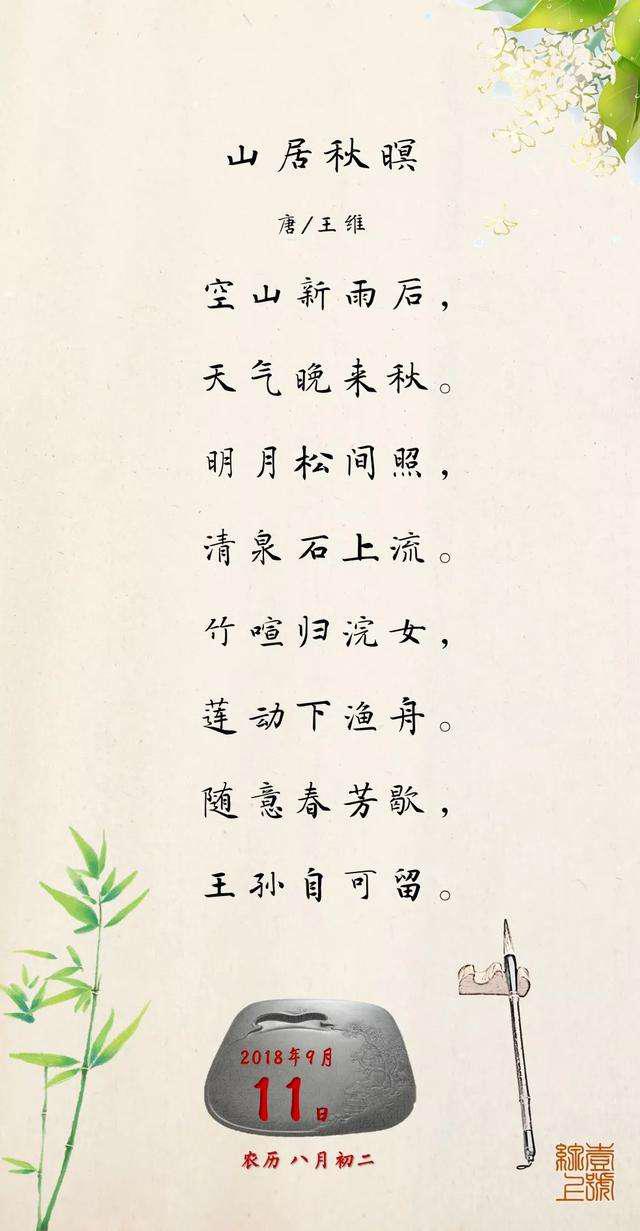 山居秋暝
唐/王维
空山新雨后，
天气晚来秋。
明月松间照，
清泉石上流。
竹喧归浣女，
莲动下渔舟。
随意春芳歇，
王孙自可留。
2018年9月
11日
农历 八月初二
壹號